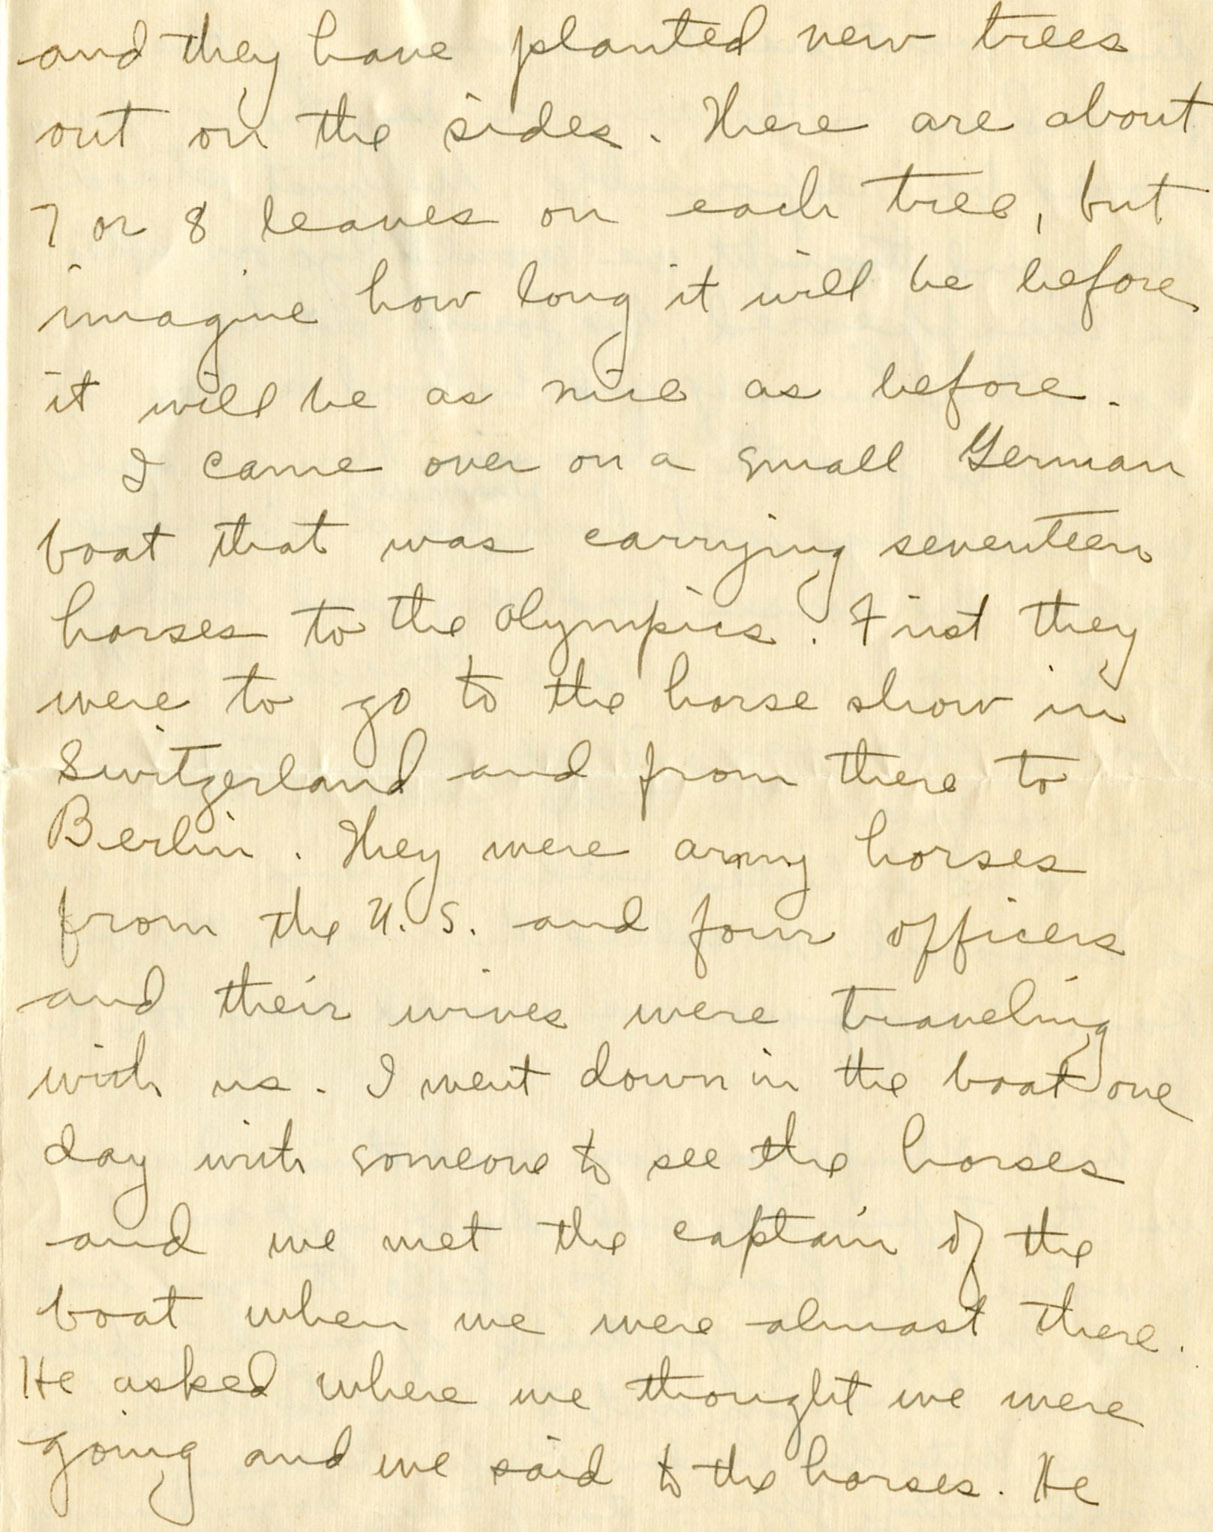 and they have planted new trees
out on the sides. There are about
7 or 8 leaves on each tree, but
imagine how long it will be before
it will be as nice as before.
I came over on a small German
boat that was carrying seventeen
horses to the Olympics. First they
were to go to the horse show in
Switzerland and from there to
Berlin. They were army horses
from the U.S. and four officers
and their wives were traveling
with us. I went down in the boat one
day with someone to see the horses
and we met the captain of the
boat when we were almost there.
He asked where we thought we were
going and we said to the horses. He